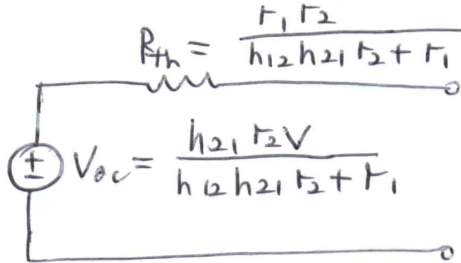 R_th = r_1 r_2 / (h_12 h_21 r_2 + r_1)
±
V_oc = h_21 r_2 V / (h_12 h_21 r_2 + r_1)